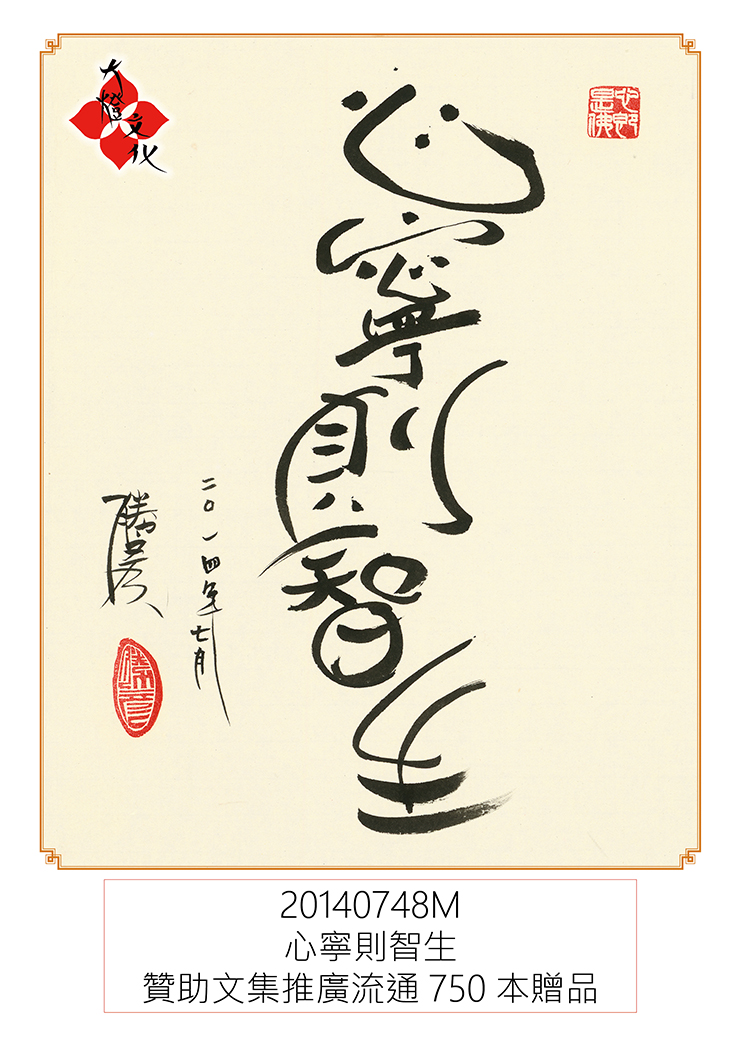 大燈文化
心即是佛
心寧則智生
二〇一四年七月
20140748M
心寧則智生
贊助文集推廣流通 750 本贈品